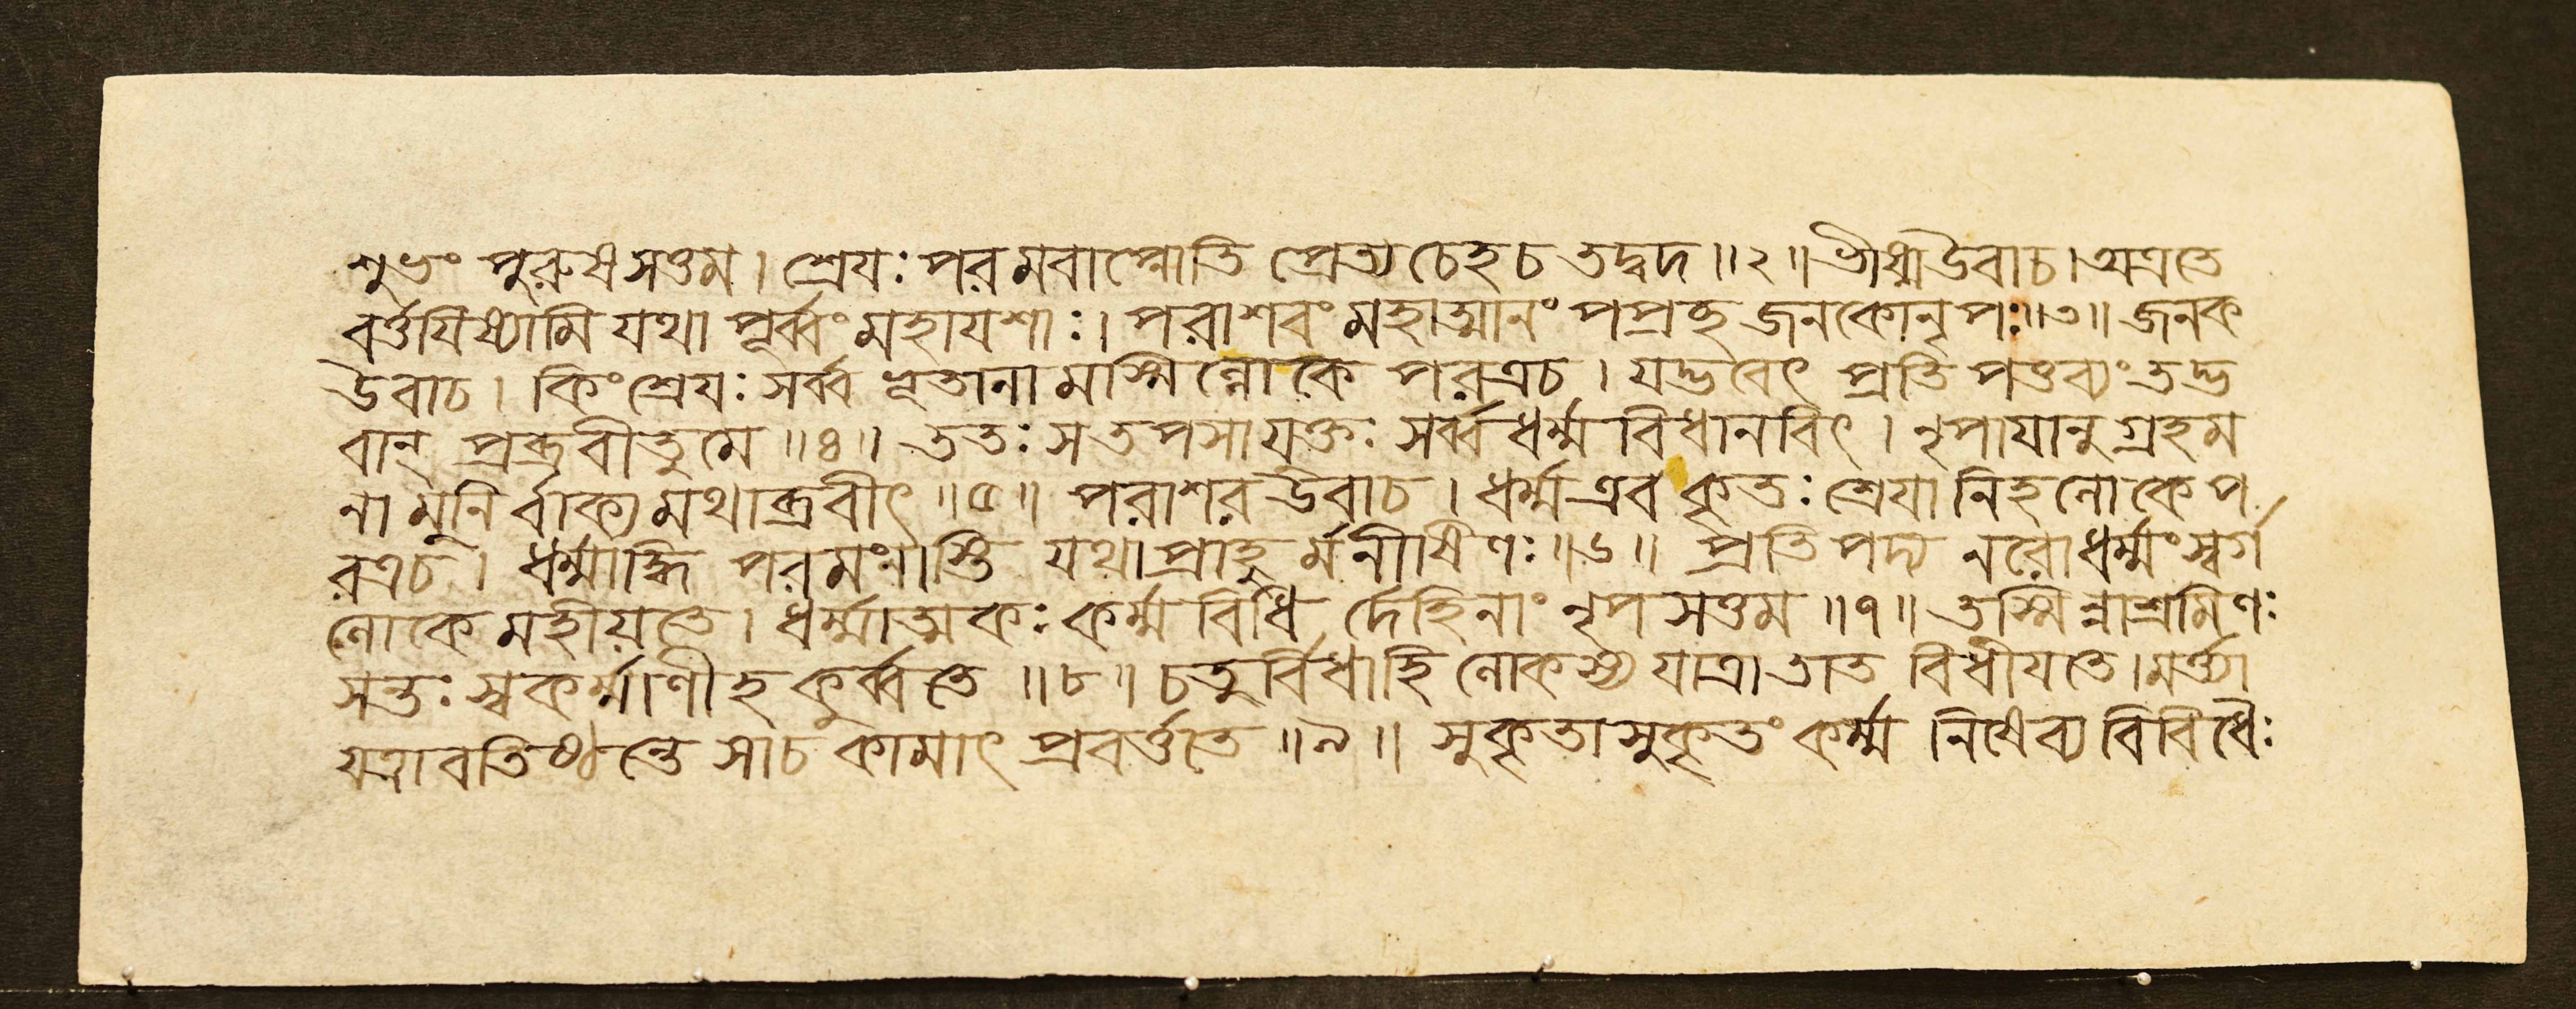 শুভং পুরুষসত্তম। শ্রেযঃ পরমবাপ্নোতি প্রেত্য চেহ চ তদ্বদ॥২॥ ভীষ্মউবাচ। অত্রতে
বর্ত্তযিষ্যামি যথা পূর্ব্বং মহাযশাঃ। পরাশরং মহাত্মানং পপ্রচ্ছ জনকোনৃপঃ॥৩॥ জনক
উবাচ। কিংশ্রেযঃ সর্ব্ব ভূতানামস্মিল্লোকে পরত্রচ। যদ্ভবেৎ প্রতিপত্তব্যং তদ্ভ
বান্ প্রব্রবীতুমে॥৪॥ ততঃ সতপসাযুক্তঃ সর্ব্বধর্ম্মবিধানবিৎ। নৃপাযানুগ্রহম
না মুনির্বাক্যমথাব্রবীৎ॥৫॥ পরাশরউবাচ। ধর্ম্মএব কৃতঃ শ্রেযানিহলোকেপ
রত্রচ। ধর্ম্মাদ্ধি পরমংনাস্তি যথাপ্রাহুর্মনীষিণঃ॥৬॥ প্রতিপদ্য নরোধর্ম্মংস্বর্গ
লোকে মহীয়তে। ধর্ম্মাত্মকঃ কর্ম্মবিধির্দেহিনাং নৃপসত্তম॥৭॥ তস্মিন্নাশ্রমিণঃ
সন্তঃ স্বকর্ম্মাণীহ কুর্ব্বতে॥৮॥ চতুর্বিধাহি লোকস্য যাত্রা তাত বিধীযতে। মর্ত্ত্যা
যত্রাবতিষ্ঠন্তে সাচ কামাৎ প্রবর্ত্ততে॥৯॥ সুকৃতাসুকৃতং কর্ম্ম নিষেব্য বিবিধৈঃ